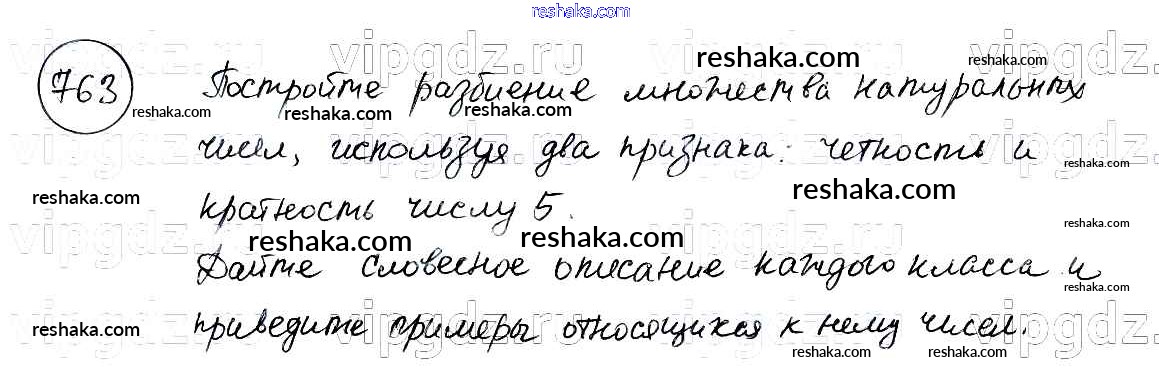 reshaka.com
763 Постройте разбиение множества натуральных
чисел, используя два признака: четность и
кратность числу 5.
Дайте словесное описание каждого класса и
приведите примеры относящихся к нему чисел.
vipgdz.ru vipgdz.ru vipgdz.ru vipgdz.ru
reshaka.com reshaka.com
reshaka.com reshaka.com reshaka.com reshaka.com
reshaka.com reshaka.com
vipgdz.ru vipgdz.ru vipgdz.ru vipgdz.ru
reshaka.com reshaka.com
reshaka.com reshaka.com
reshaka.com
vipgdz.ru vipgdz.ru vipgdz.ru vipgdz.ru
reshaka.com reshaka.com reshaka.com
reshaka.com reshaka.com